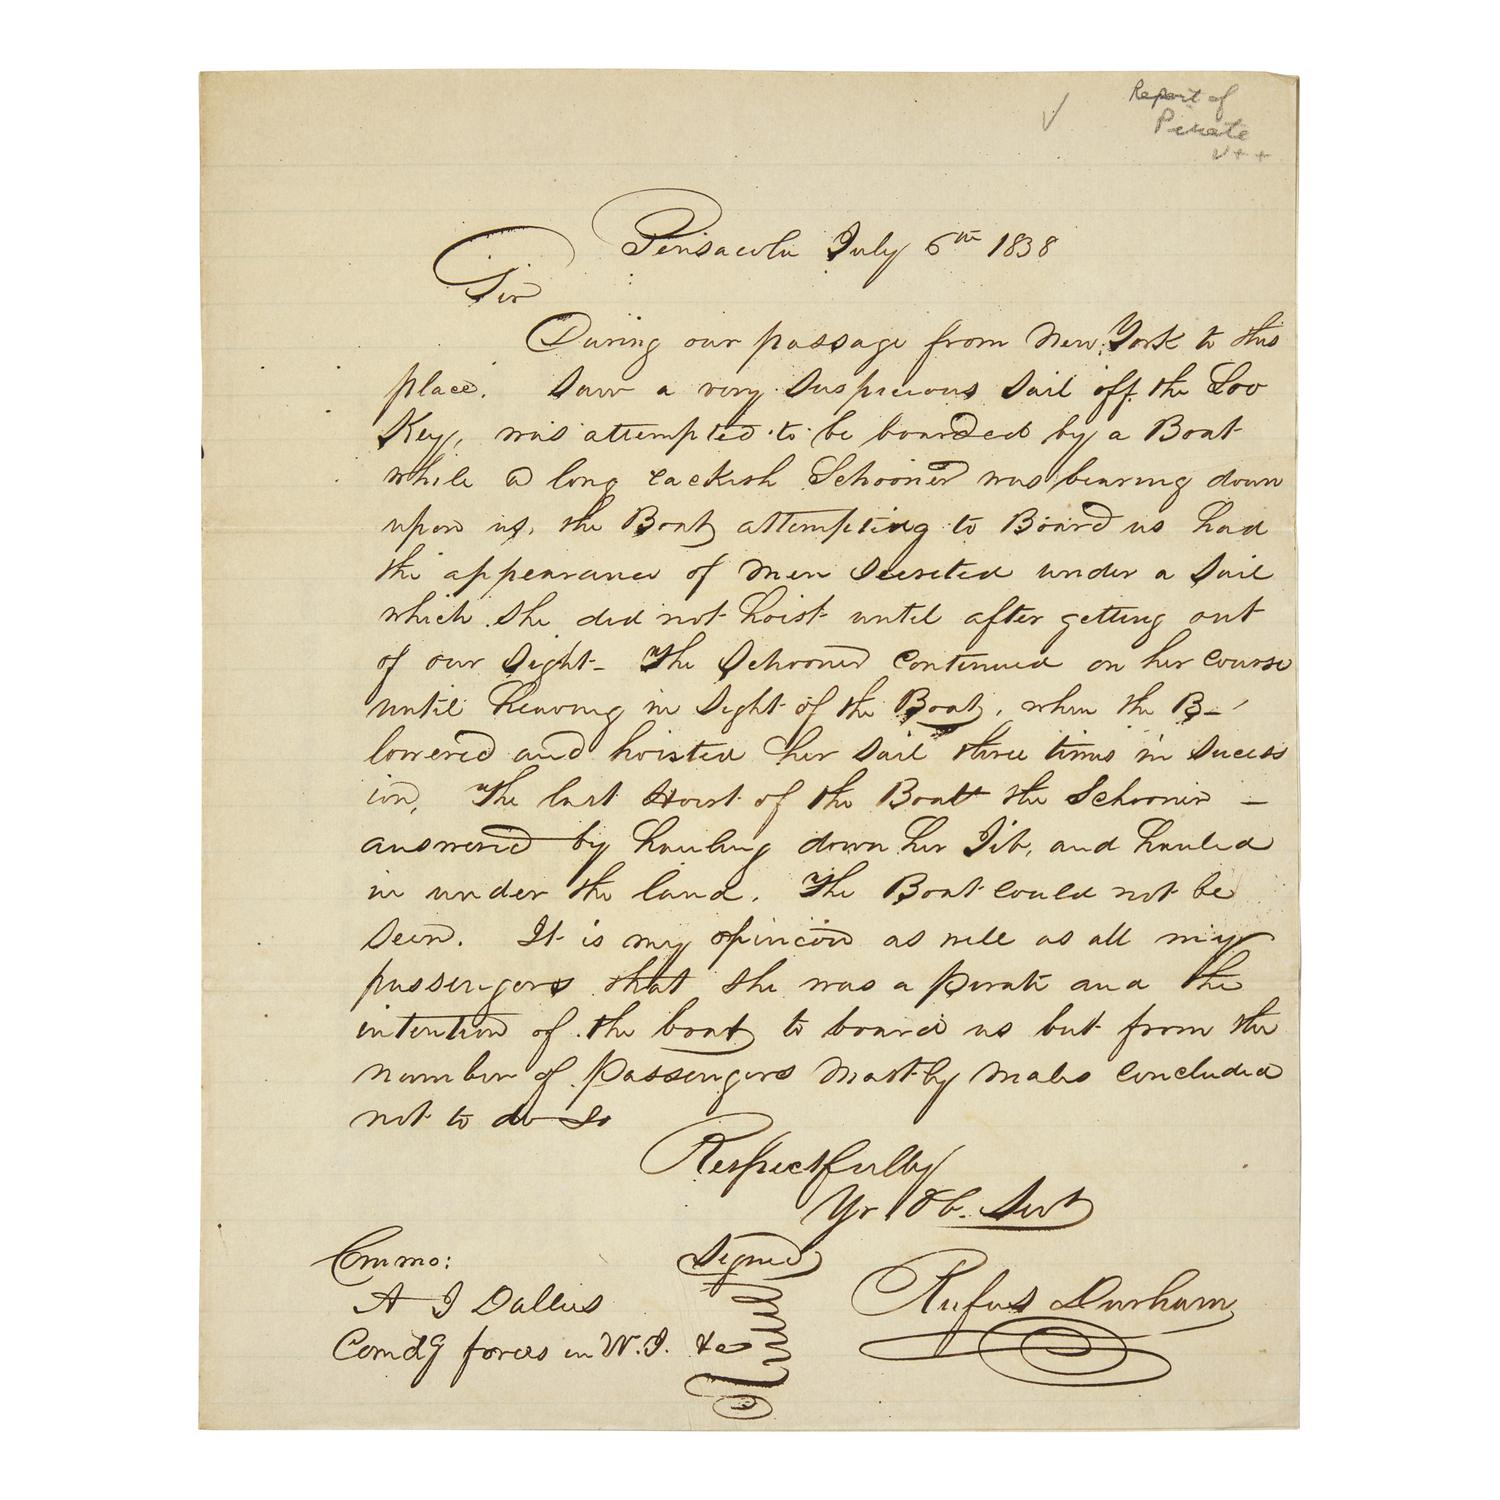 Report of
Pirate
Pensacola July 6th 1838
Sir
During our passage from New York to this
place. Saw a very Suspicious Sail off the Loo
Key, was attempted to be boarded by a Boat
while a long rackish Schooner was bearing down
upon us, the Boat attempting to Board us had
the appearance of Men Secreted under a Sail
which she did not hoist until after getting out
of our Sight - The Schooner Continued on her course
until heaving in Sight of the Boat, when the B-
lowered and hoisted her Sail three times in Sucess
ion, The last Hoist of the Boatt the Schooner -
answered by hauling down her Jib, and hauled
in under the land. The Boat could not be
Seen. It is my opinion as well as all my
passengers that she was a Pirate and the
intention of the boat to board us but from the
number of Passengers Mostly Males Concluded
not to do So
Respectfully
Yr Ob. Servt
Signed
Rufus Durham
Commo:
A J Dallas
Comdg forces in W.I. &c